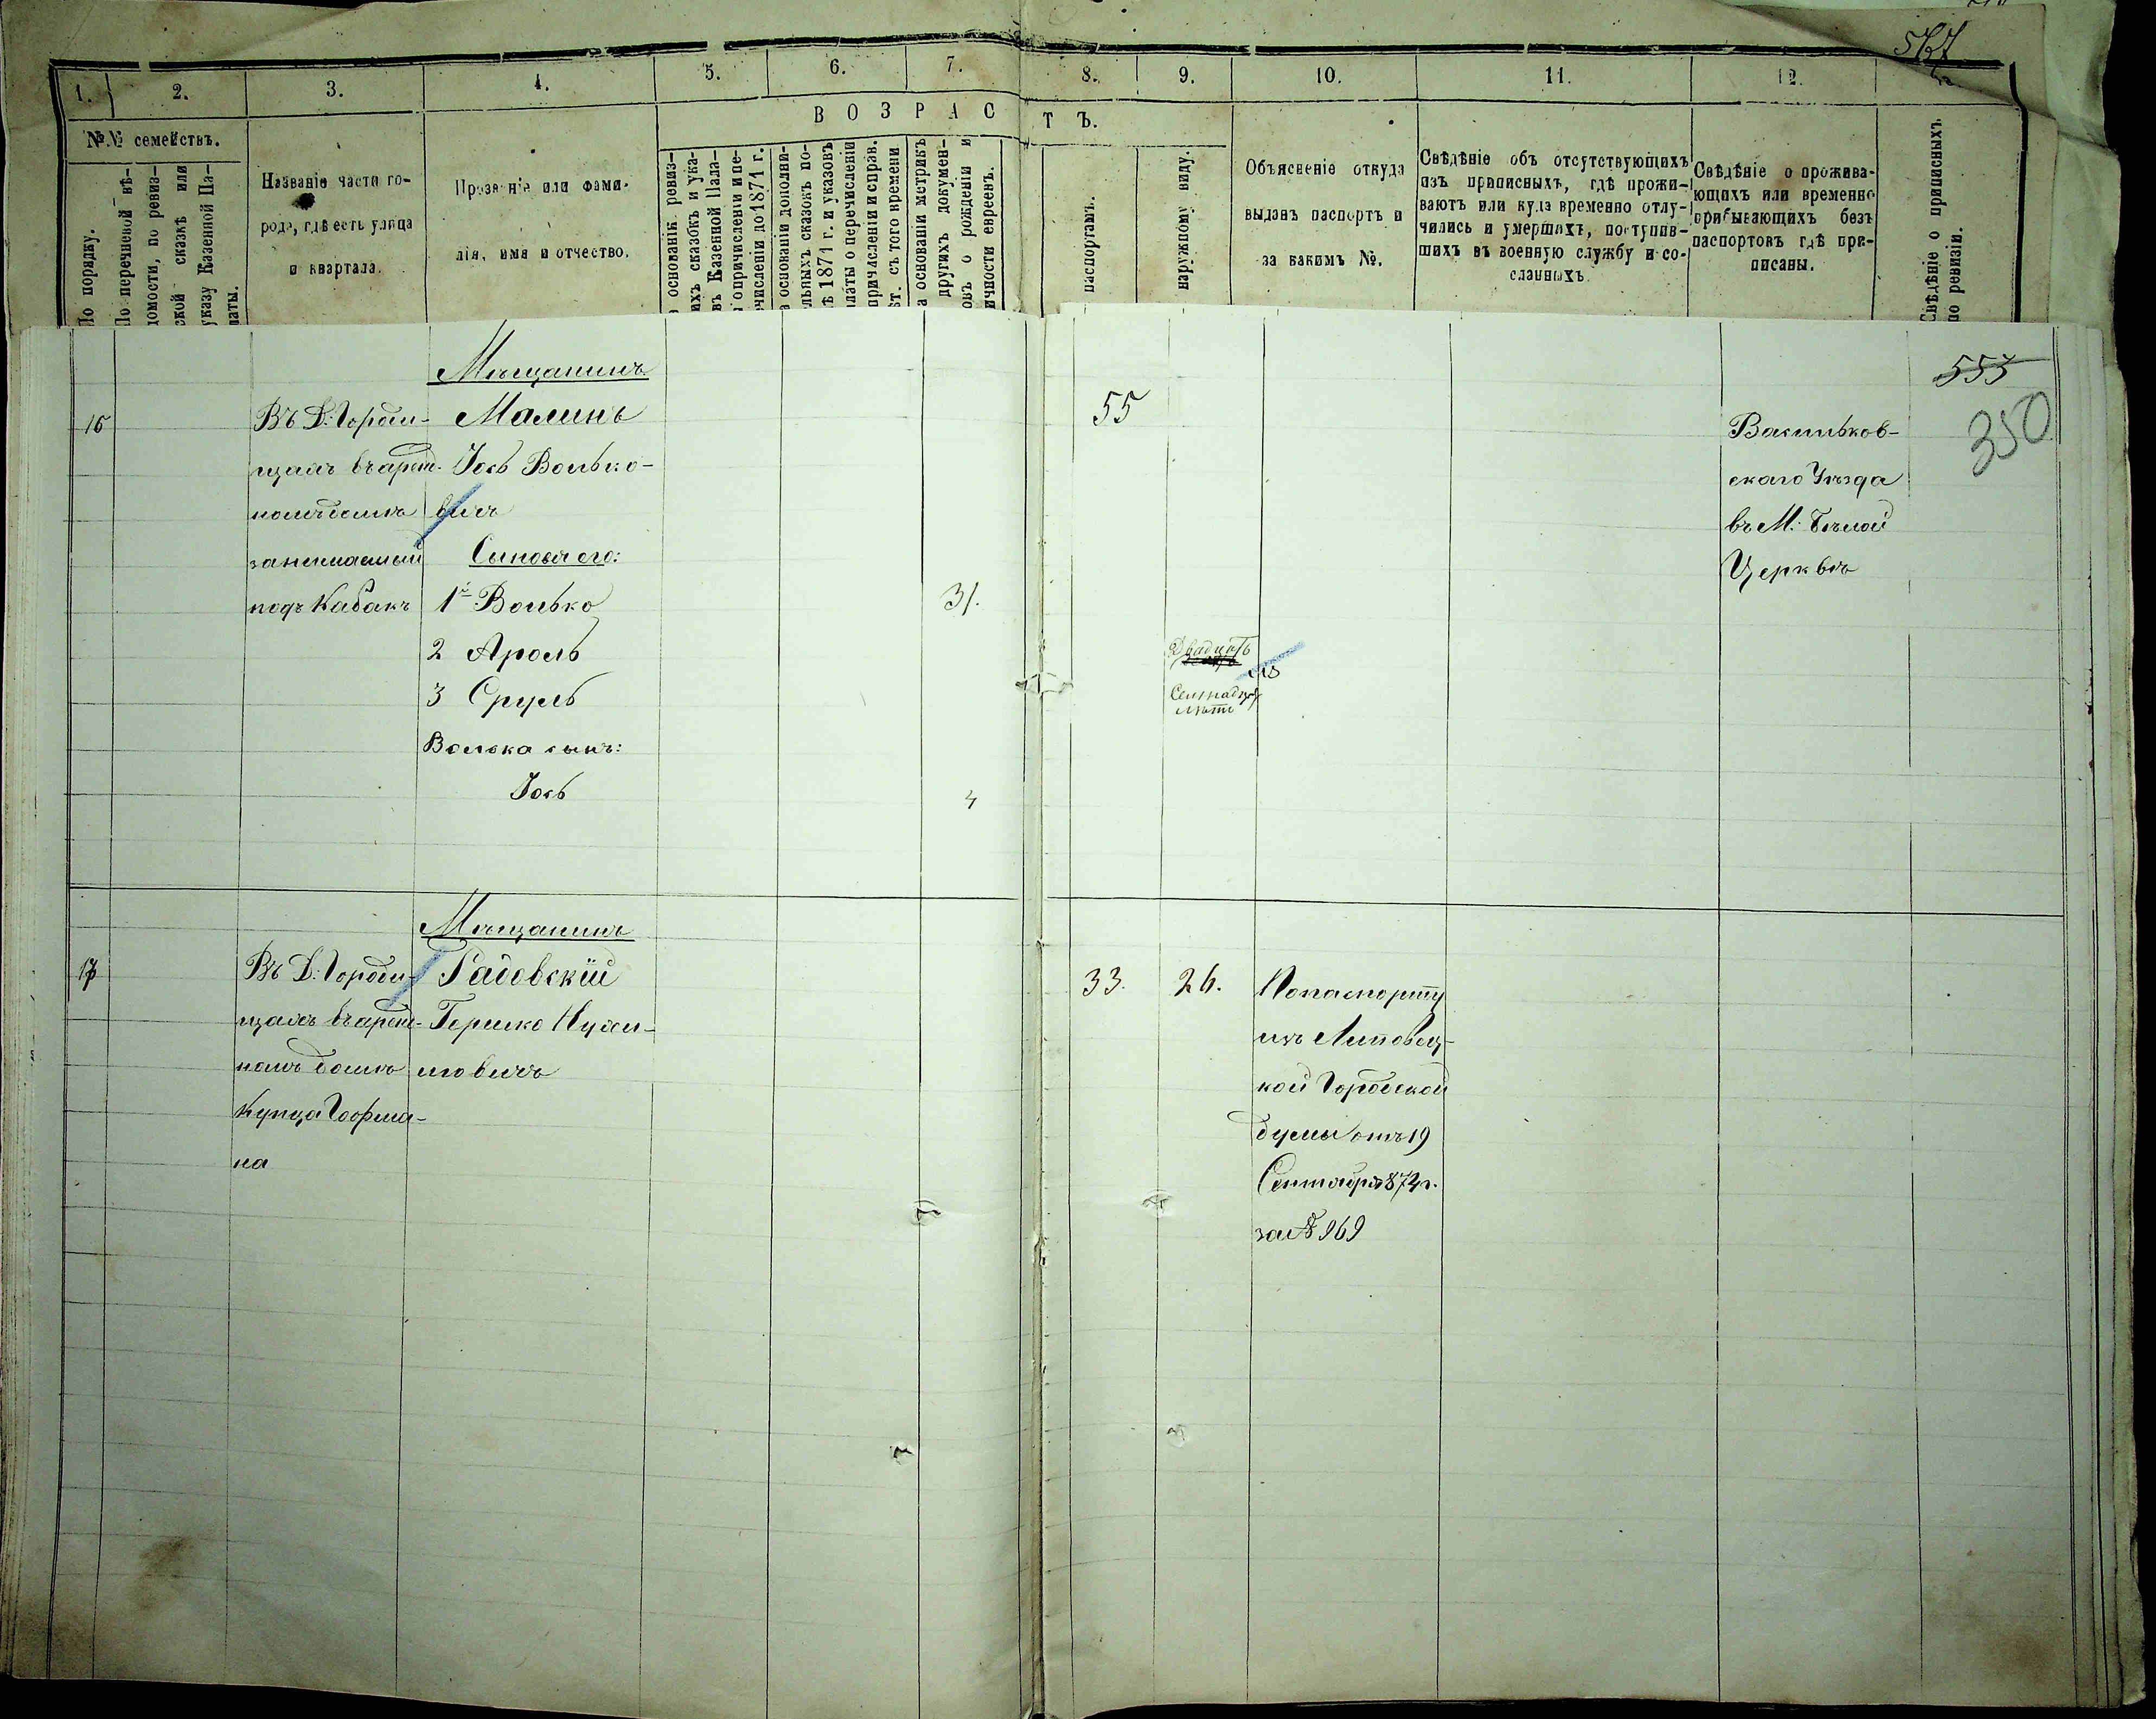 577
1. 2. 3. 4. 5. 6. 7. 8. 9. 10. 11. 12.
ВОЗРАСТЪ.
№№ семействъ.
По порядку.
По перечневой вѣ-
домости, по ревиз-
ской сказкѣ или
указу Казенной Па-
латы.
Названіе части го-
рода, гдѣ есть улица
и квартала.
Прозваніе или фами-
лія, имя и отчество.
основаніи ревиз-
ихъ сказокъ и ука-
въ Казенной Пала-
о причисленіи и пе-
численіи до 1871 г.
основаніи дополни-
льныхъ сказокъ по-
ѣ 1871 г. и указовъ
латы о перечисленіи
причисленіи и справ.
ѣт. съ того времени
а основаніи метрикъ
другихъ докумен-
овъ о рожденіи и
ичности евреевъ.
паспортамъ.
наружному виду.
Объясненіе откуда
выданъ паспортъ и
за какимъ №.
Свѣдѣніе объ отсутствующихъ
изъ приписныхъ, гдѣ прожи-
ваютъ или куда временно отлу-
чились и умершихъ, поступив-
шихъ въ военную службу и со-
сланныхъ
Свѣдѣніе о прожива-
ющихъ или временно
прибывающихъ безъ
паспортовъ гдѣ при-
писаны.
Свѣдѣніе о приписныхъ
по ревизіи.
553
350
Мѣщанинъ
16
Въ Д: Городи-
щахъ въ аренд-
номъ домѣ
занимаемый
подъ Кабакъ
Малинъ
Іось Волько-
вичъ
Сыновья его:
1й Волько
2 Ароль
3 Сруль
Волька сынъ:
Іось
31.
4
55
Двадцать
Семнадцать
лѣтъ
Васильков-
скаго Уѣзда
въ М: Бѣлой
Церквѣ
Мѣщанинъ
17
Въ Д: Городи-
щахъ въ аренд-
номъ домѣ
Купца Гофма-
на
Гадовскій
Гершко Нухи-
мовичъ
33. 26.
По паспорту
изъ Липовец-
кой Городской
думы отъ 19
Сентября 874 г.
за № 969